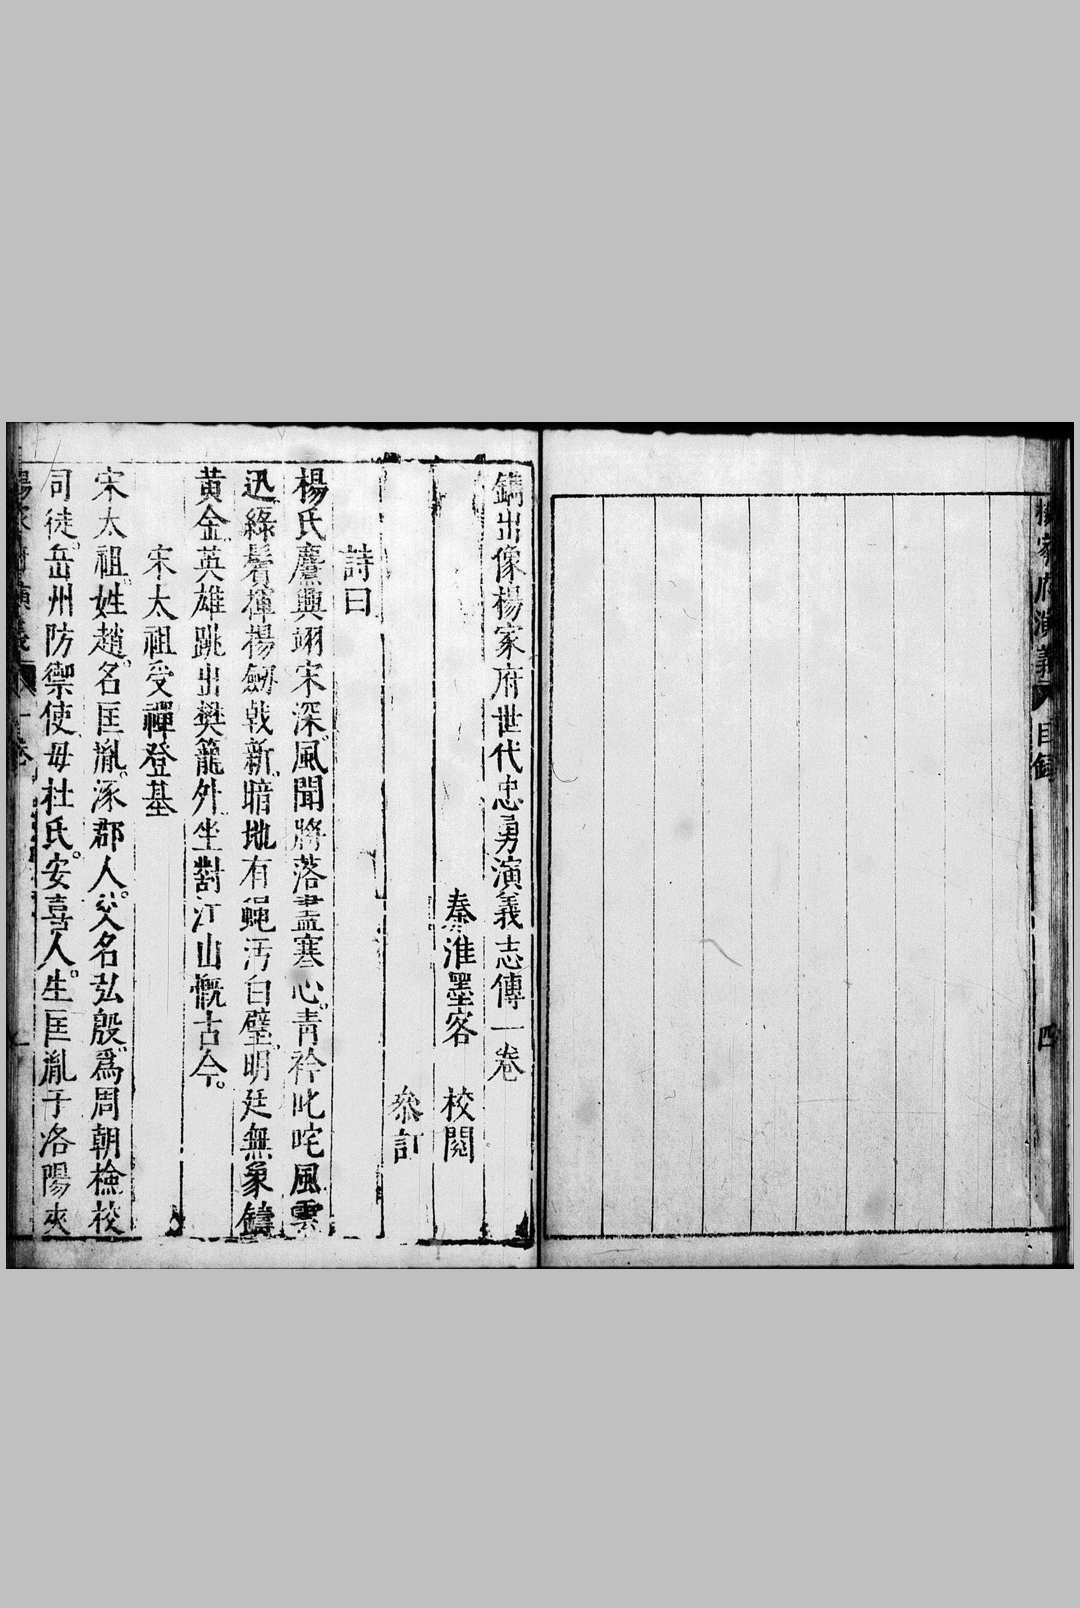 楊家府演義 目錄 四
鐫出像楊家府世代忠勇演義志傳一卷
秦淮墨客 校閱
參訂
詩曰
楊氏麈興翊宋深風聞將落盡寒心。青衿叱咤風雲
迅綠鬢揮楊劒戟新暗地有蝿汚白璧明廷無象鑄
黄金英雄跳出樊籠外坐對江山慨古今。
宋太祖受禪登基
宋太祖姓趙名匡胤。涿郡人。父名弘殷爲周朝檢校
司徒岳州防禦使母杜氏。安喜人。生匡胤于洛陽夾
楊家府演義 一卷 一